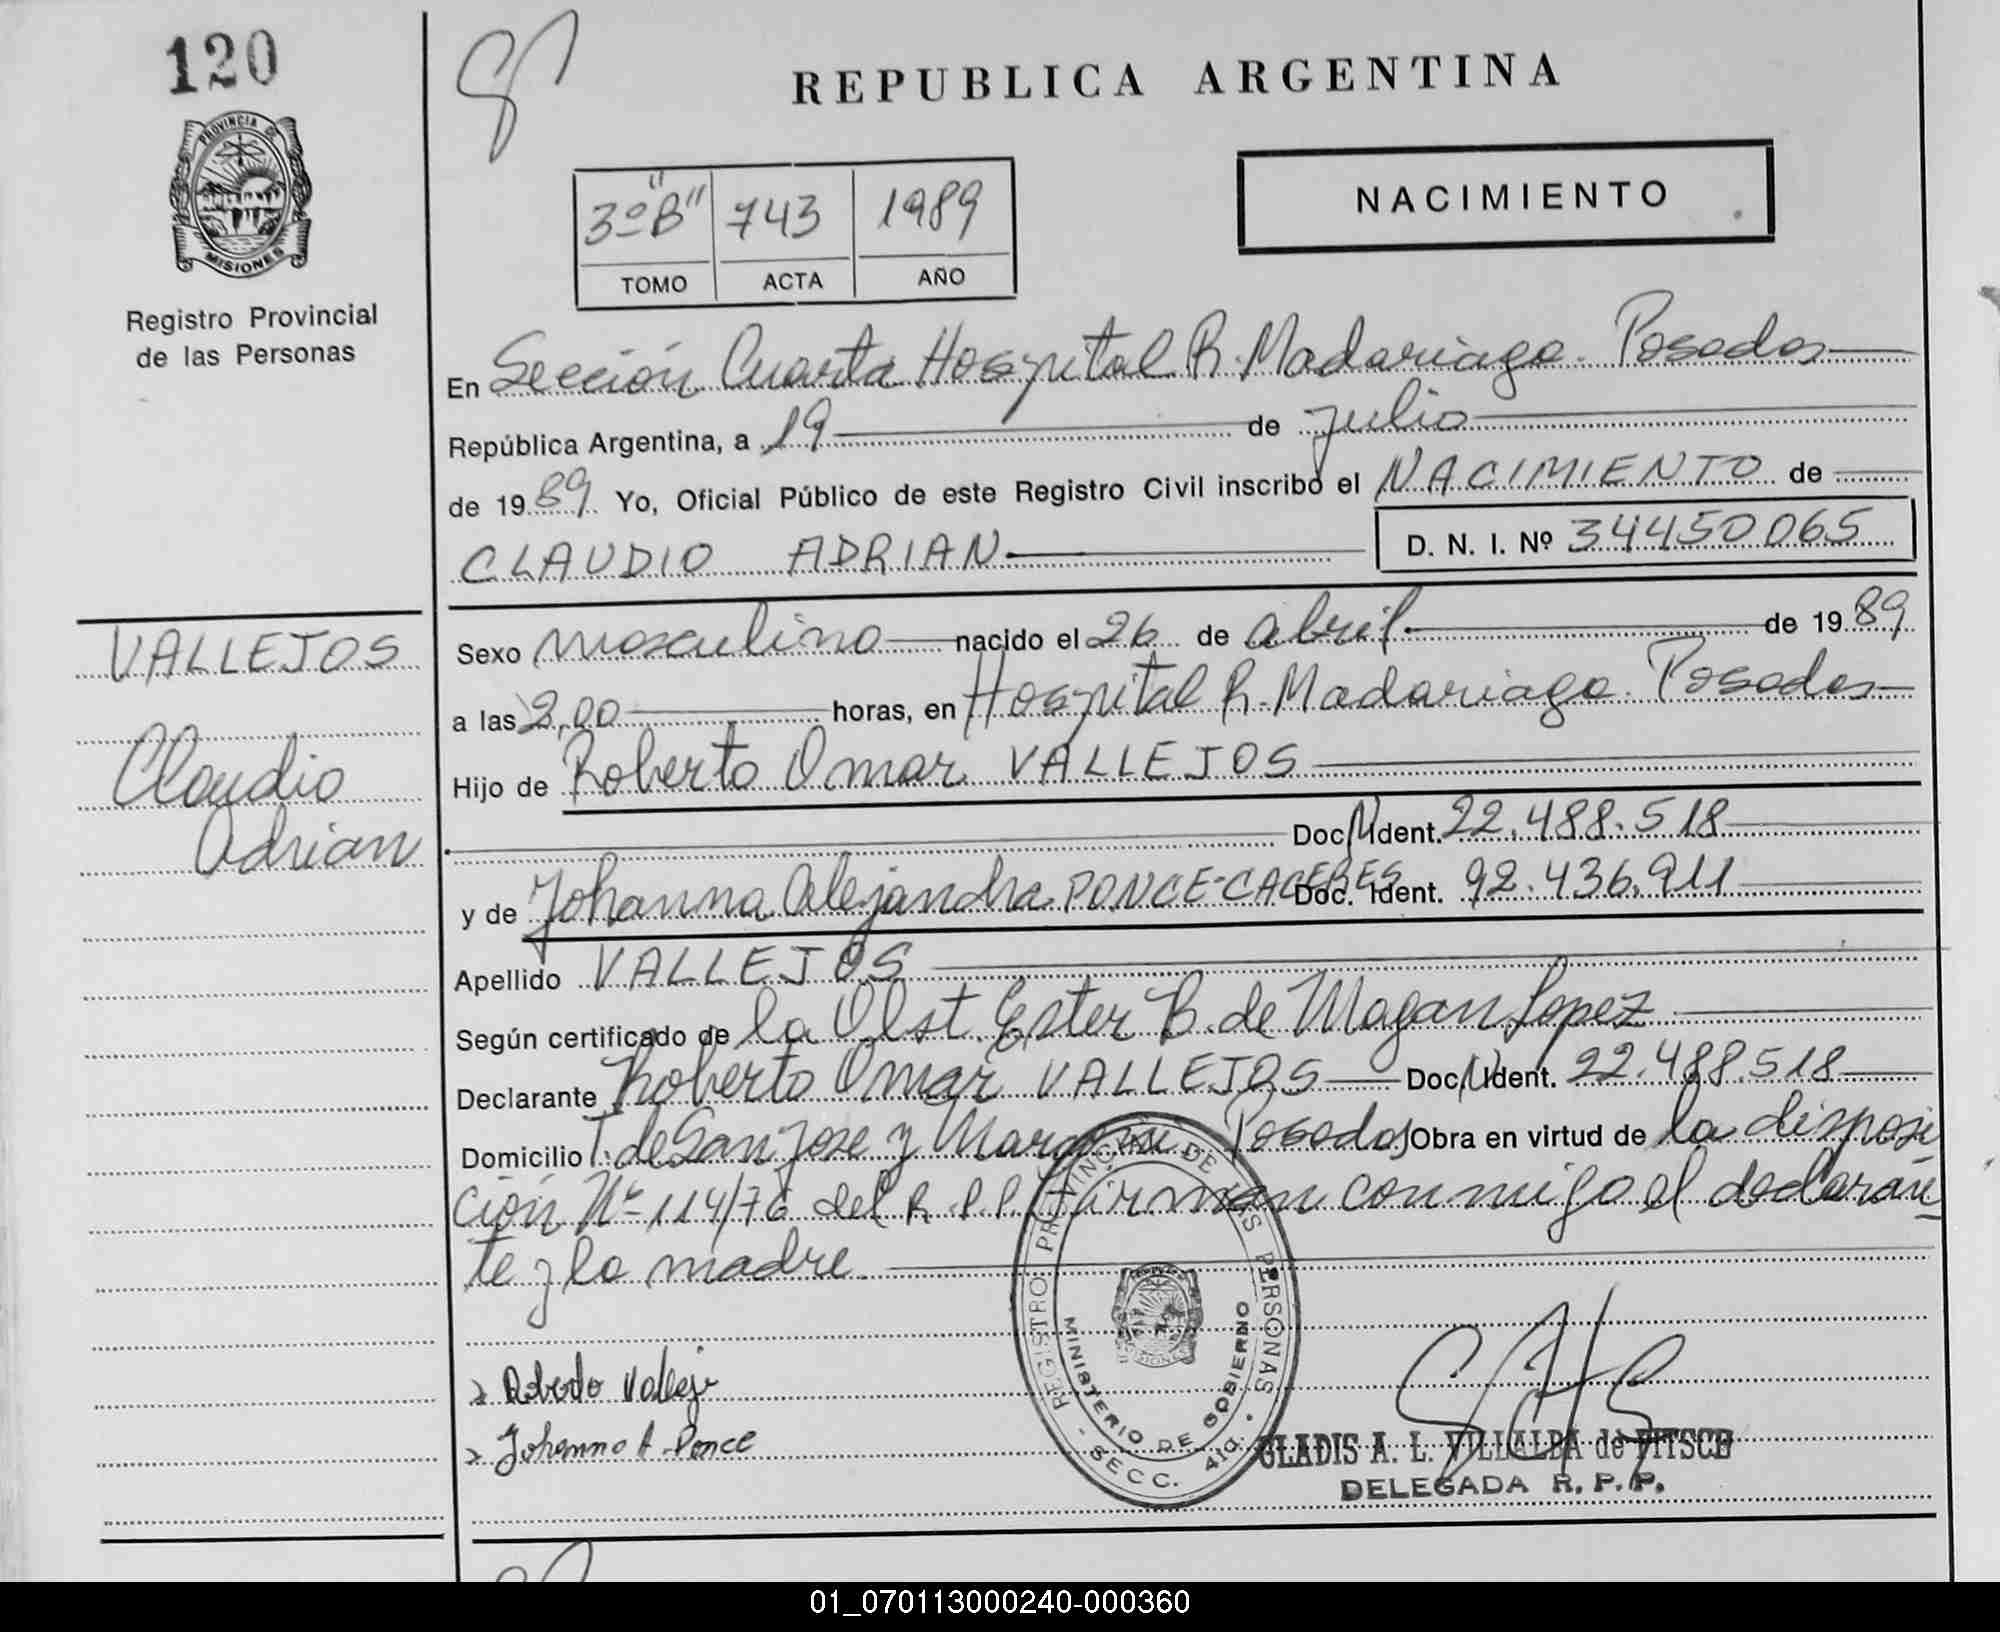 120
PROVINCIA DE
MISIONES
Registro Provincial
de las Personas
REPUBLICA ARGENTINA
3º "B" 743 1989
TOMO ACTA AÑO
NACIMIENTO
En Sección Cuarta Hospital R. Madariaga. Posadas
República Argentina, a 19 de julio
de 1989 Yo, Oficial Público de este Registro Civil inscribo el NACIMIENTO de
CLAUDIO ADRIAN D. N. I. Nº 34450065
VALLEJOS
Claudio
Adrian
Sexo masculino nacido el 26 de abril de 1989
a las 2,00 horas, en Hospital R. Madariaga. Posadas
Hijo de Roberto Omar VALLEJOS
Doc. N. Ident. 22.488.518
y de Johanna Alejandra PONCE-CACERES Doc. Ident. 92.436.911
Apellido VALLEJOS
Según certificado de la Obst. Ester B. de Magan Lopez
Declarante Roberto Omar VALLEJOS Doc. N. Ident. 22.488.518
Domicilio T. de San Jose y Posadas Obra en virtud de la disposi
ción Nº 114/76 del R.P.P. Firman conmigo el declaran
te y la madre.
Roberto Vallejo
Johanna A. Ponce
REGISTRO PROVINCIAL DE LAS PERSONAS
MINISTERIO DE GOBIERNO
SECC. 4ta.
GLADIS A. L. VILLALBA de FITSCH
DELEGADA R. P. P.
01_070113000240-000360